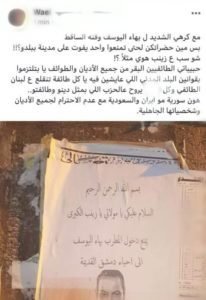 Wae
1 min
مع كرهي الشديد ل بهاء اليوسف وفنه الساقط
بس مين حضراتكن لحتى تمنعوا واحد يفوت على مدينة ببلدو؟!!
شو سبب ع زينب هوي مثلاً ؟!
حبيباتي الطائفيين البقر من جميع الأديان والطوائف يا بتلتزموا
بقوانين البلد المدني اللي عايشين فيه يا كل طائفة تنقلع ع لبنان
الطائفي وكل يروح عالحزب اللي بمثل دينو وطائفتو..
هون سورية مو ايران والسعودية مع عدم الاحترام لجميع الأديان
وشخصياتها الجاهلية.
بسم الله الرحمن الرحيم
السلام عليكي يا مولاتي يا زينب الكبرى
يمنع دخول المطرب بهاء اليوسف
الى احياء دمشق القديمة